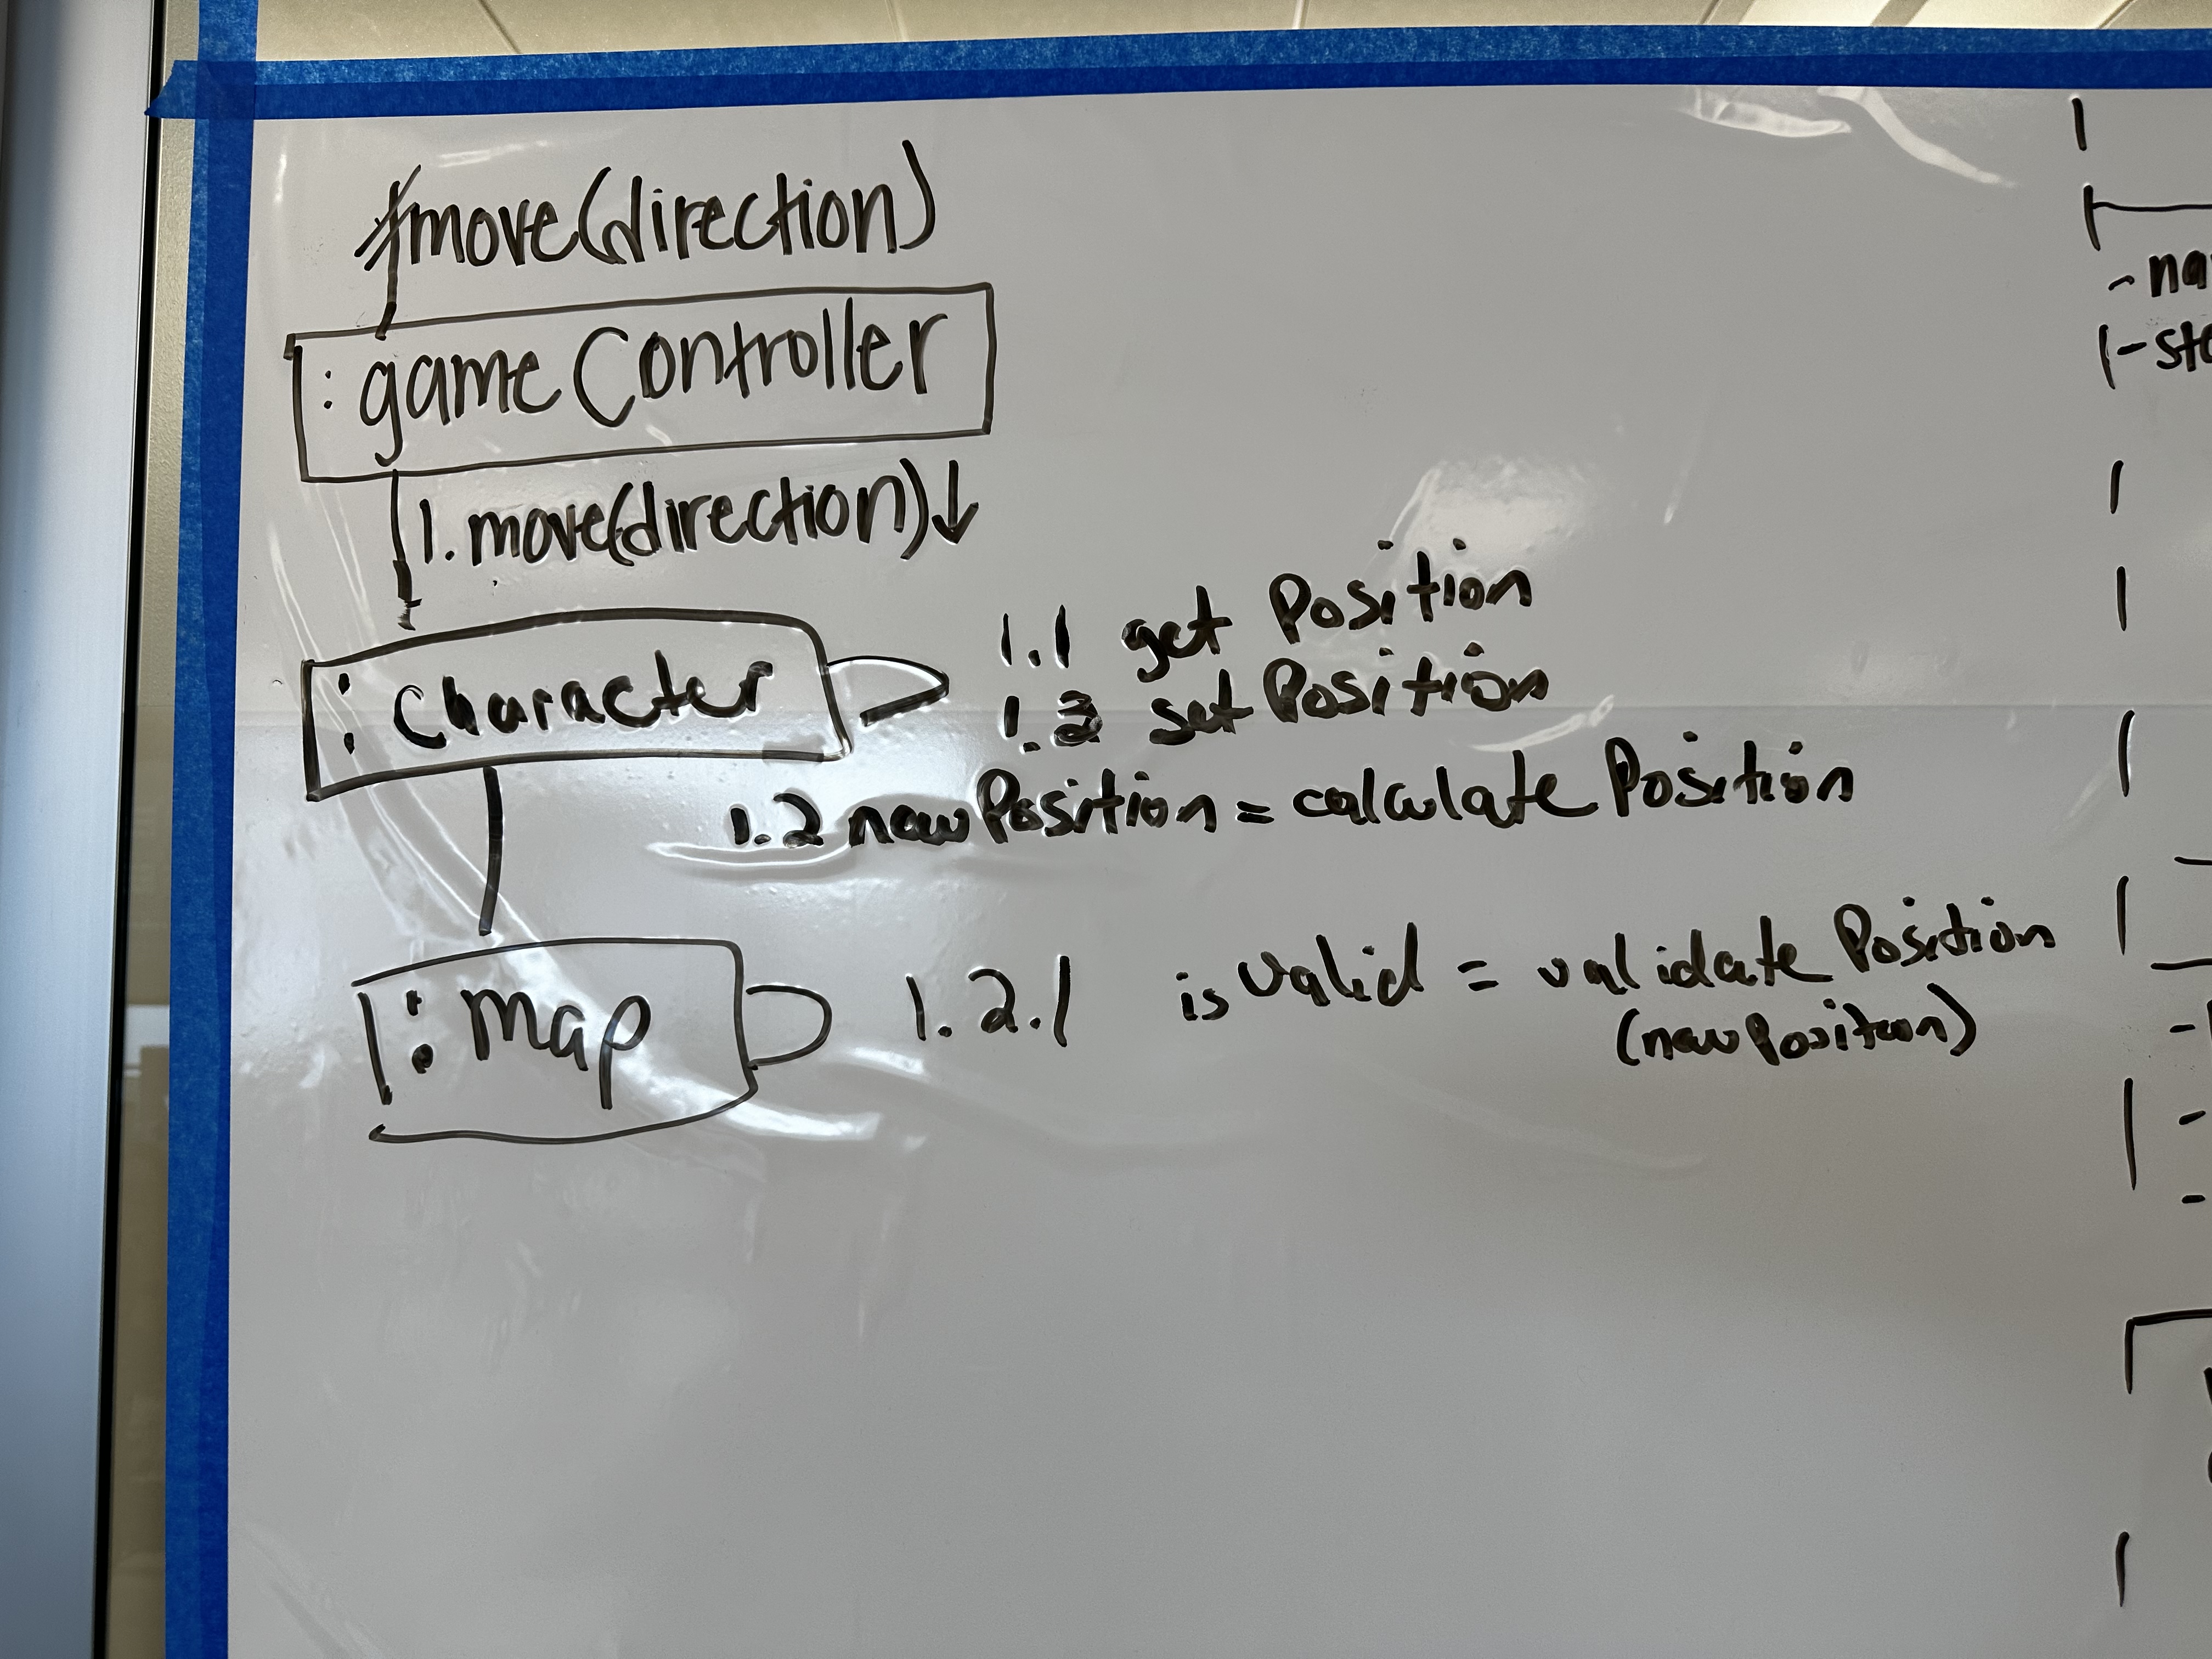 move(direction)
: gameController
1. move(direction)↓
: Character
1.1 get Position
1.3 set Position
1.2 newPosition = calculate Position
: Map
1.2.1 is Valid = validate Position
(newPosition)
- na
- ste